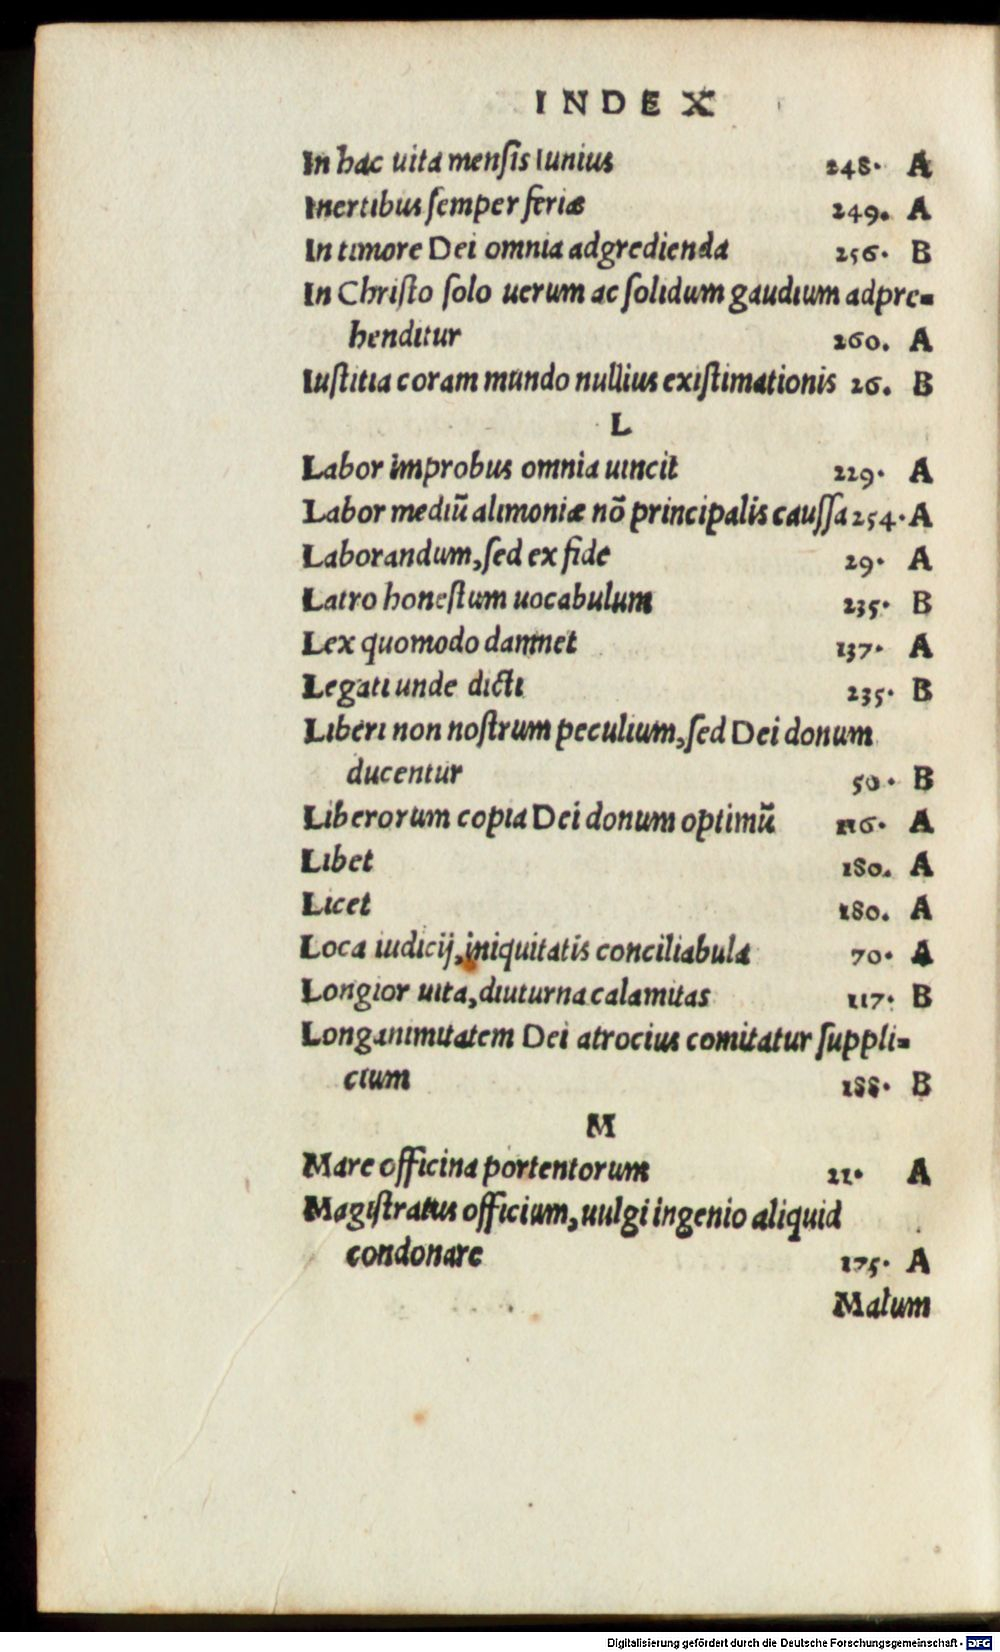 INDEX
In hac uita menſis Iunius 248. A
Inertibus ſemper feriæ 249. A
In timore Dei omnia adgredienda 256. B
In Chriſto ſolo uerum ac ſolidum gaudium adpre-
henditur 260. A
Iuſtitia coram mundo nullius exiſtimationis 26. B
L
Labor improbus omnia uincit 229. A
Labor mediū alimoniæ nō principalis cauſſa 254. A
Laborandum, ſed ex fide 29. A
Latro honeſtum uocabulum 235. B
Lex quomodo damnet 137. A
Legati unde dicti 235. B
Liberi non noſtrum peculium, ſed Dei donum
ducentur 50. B
Liberorum copia Dei donum optimū 116. A
Libet 180. A
Licet 180. A
Loca iudicij, iniquitatis conciliabula 70. A
Longior uita, diuturna calamitas 117. B
Longanimitatem Dei atrocius comitatur ſuppli-
cium 188. B
M
Mare officina portentorum 21. A
Magiſtratus officium, uulgi ingenio aliquid
condonare 175. A
Malum
Digitalisierung gefördert durch die Deutsche Forschungsgemeinschaft - DFG